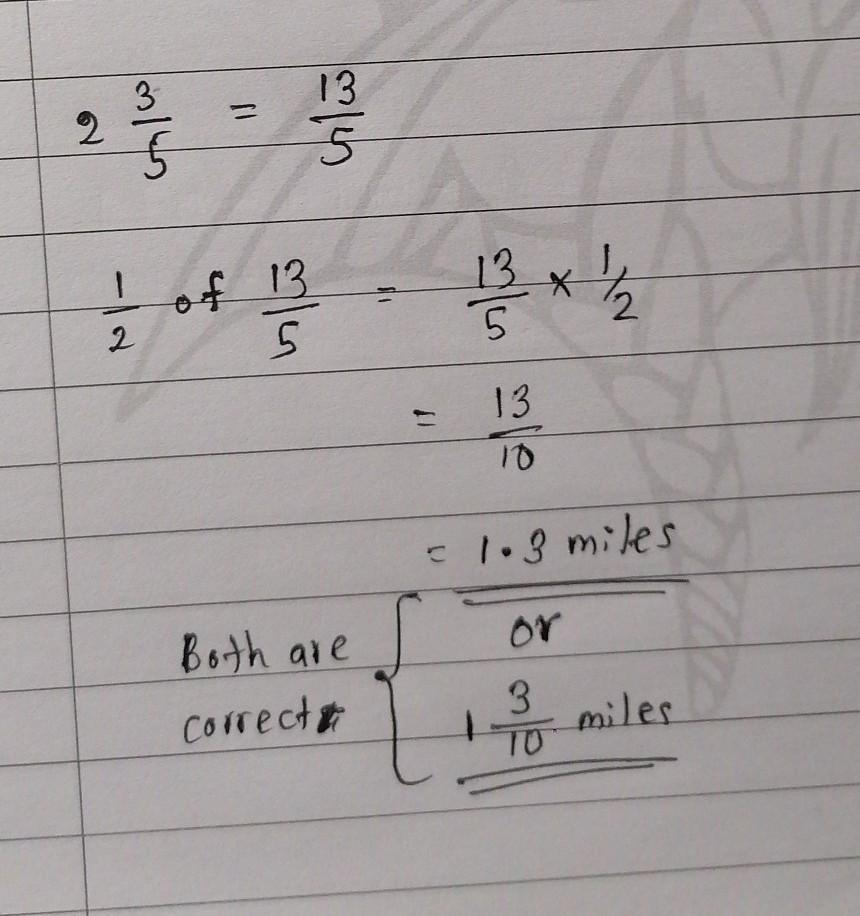 2 3/5 = 13/5
1/2 of 13/5 = 13/5 × 1/2
= 13/10
= 1.3 miles
or
Both are
correct
1 3/10 miles